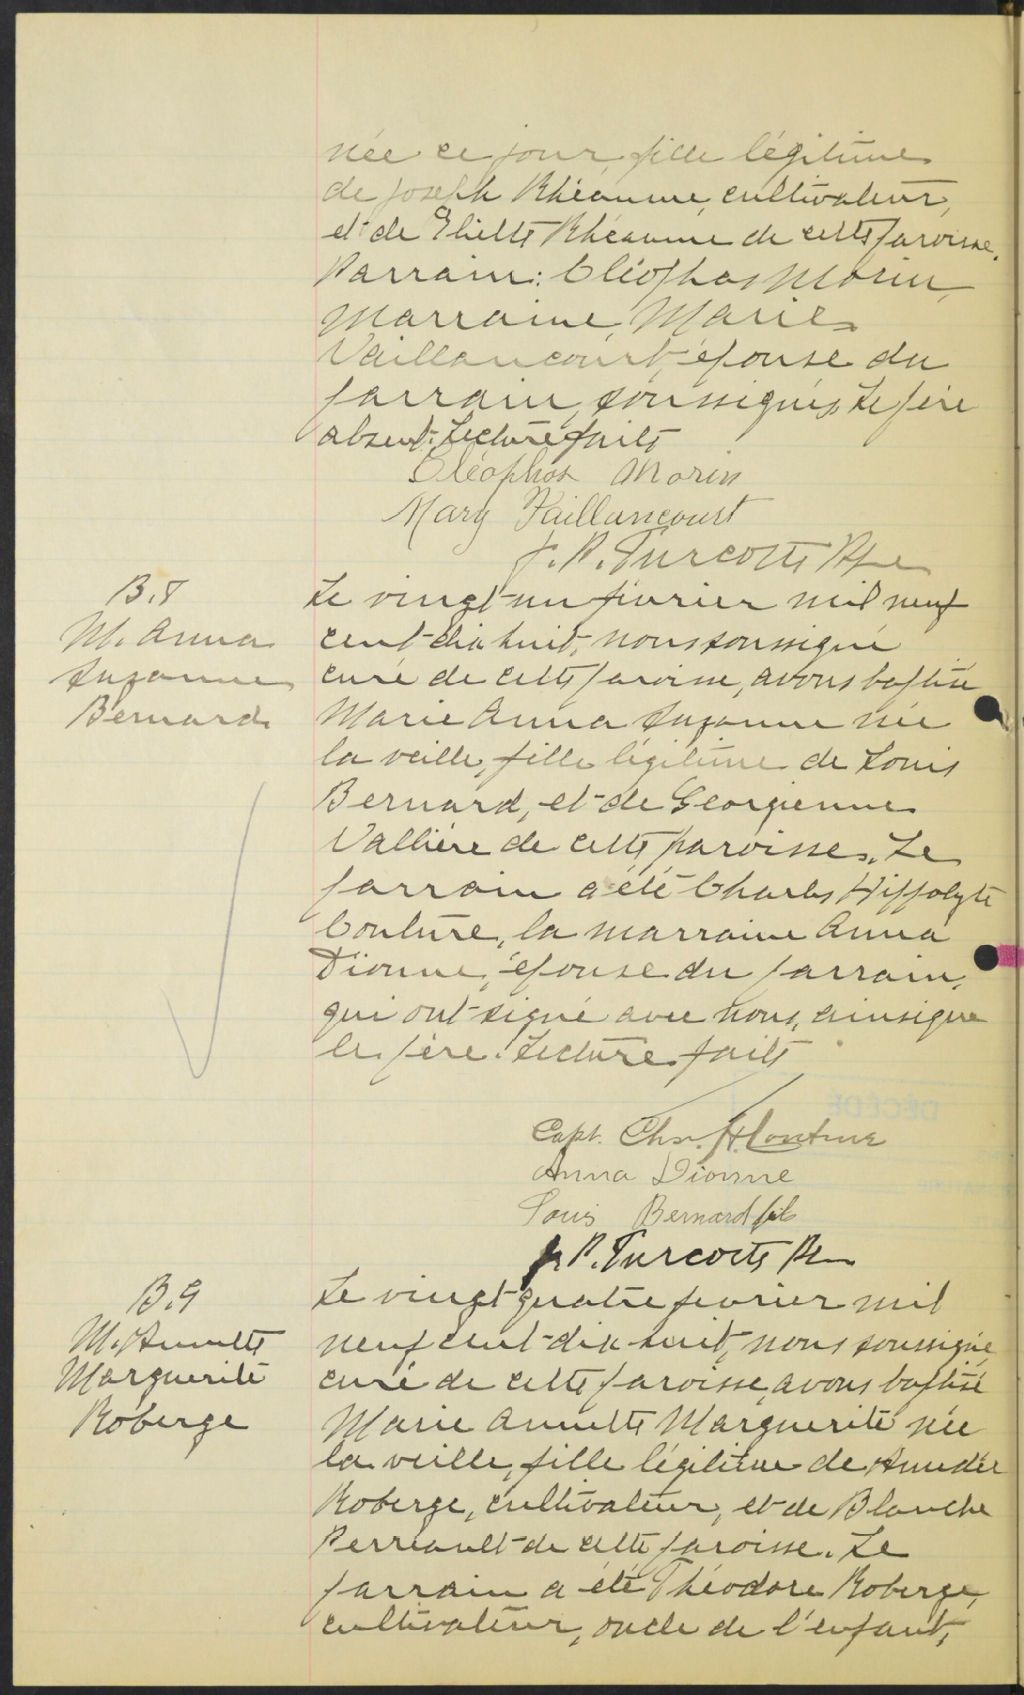 née ce jour, fille légitime
de Joseph Rhéaume, cultivateur,
et de Rhéaume de cette paroisse.
Parrain: Cléophas Morin,
marraine, Marie
Vaillancourt, épouse du
parrain, soussignés. Le père
absent. Lecture faite
Cléophas Morin
Mary Vaillancourt
J. P. Turcotte Ptre
B.8
M. Anna
Suzanne
Bernard
Le vingt-un février mil neuf
cent-dix huit, nous soussigné
curé de cette paroisse, avons baptisé
Marie Anna Suzanne née
la veille, fille légitime de Louis
Bernard, et de Georgienne
Vallière de cette paroisse. Le
parrain a été Charles Hippolyte
Couture, la marraine Anna
Dionne, épouse du parrain,
qui ont signé avec nous, ainsi que
le père. Lecture faite
Capt. Chs. H. Couture
Anna Dionne
Louis Bernard fils
J. P. Turcotte Ptre
B.9
M. Annette
Marguerite
Roberge
Le vingt-quatre février mil
neuf cent-dix-huit, nous soussigné
curé de cette paroisse, avons baptisé
Marie Annette Marguerite née
la veille, fille légitime de Amédée
Roberge, cultivateur, et de Blanche
Perreault de cette paroisse. Le
parrain a été Théodore Roberge,
cultivateur, oncle de l'enfant,
DÉCÉDÉ